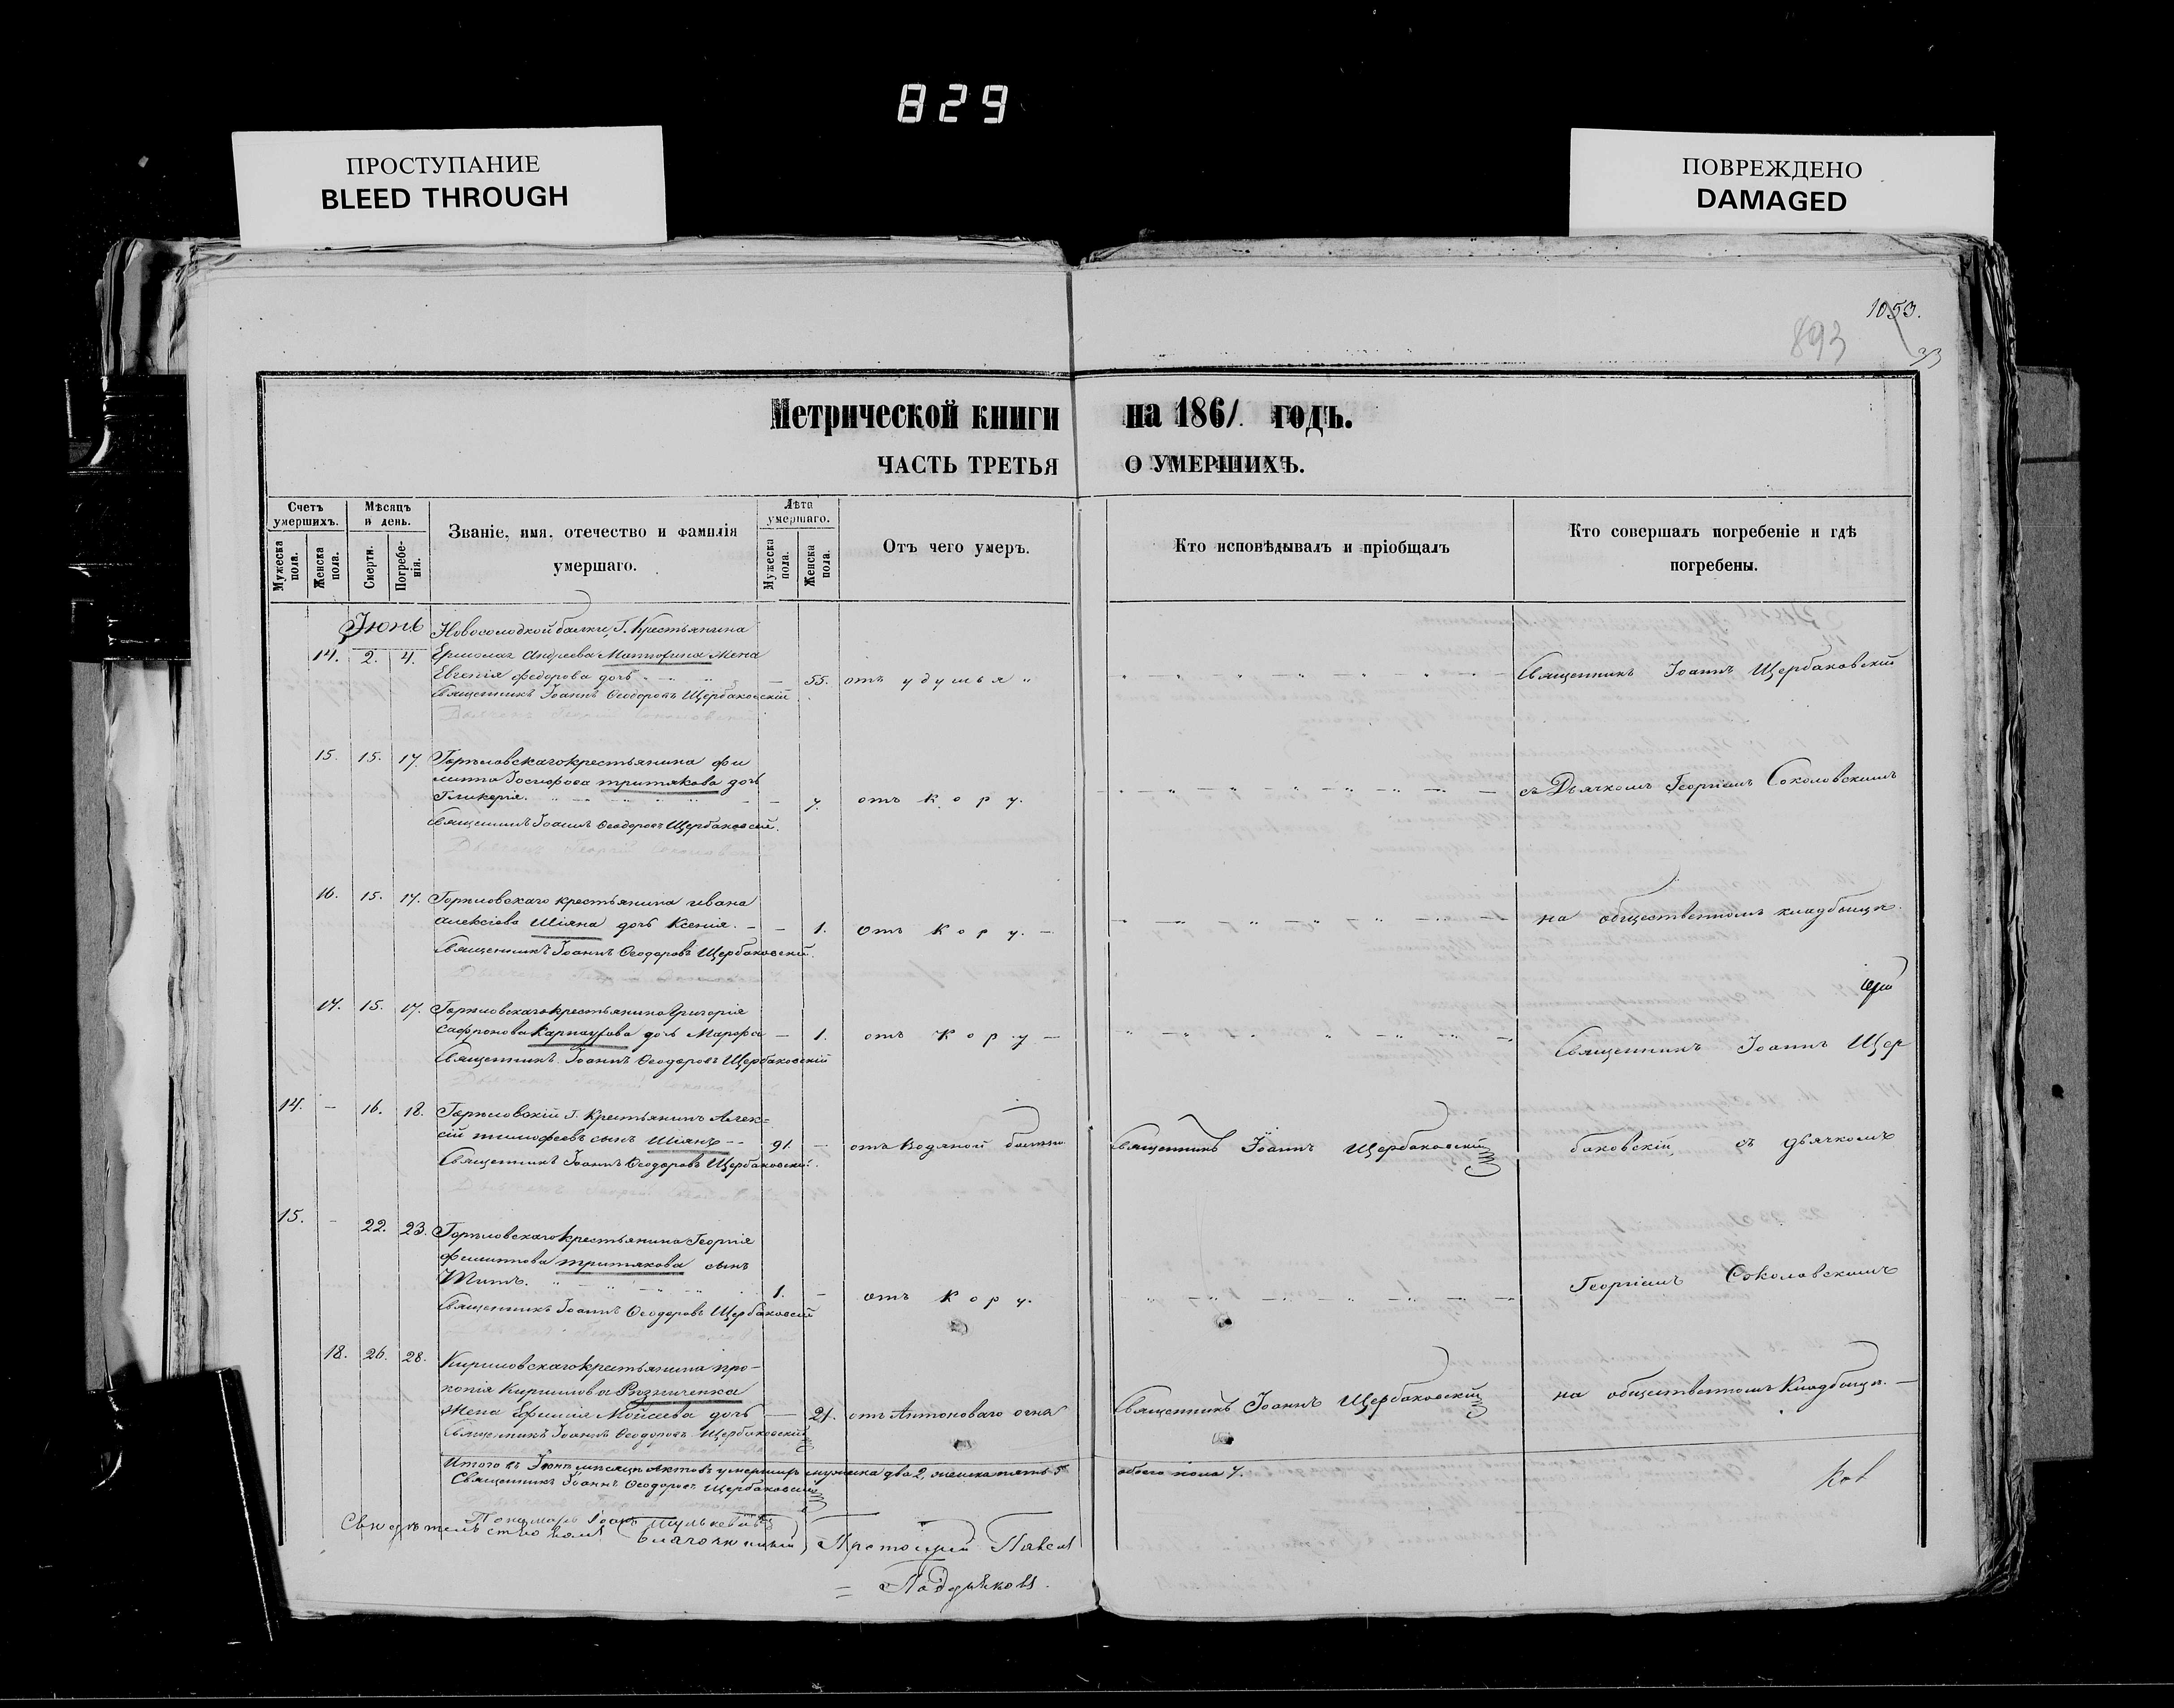 829
ПРОСТУПАНИЕ
BLEED THROUGH
ПОВРЕЖДЕНО
DAMAGED
1053.
893
Метрической книги на 1861 годъ.
ЧАСТЬ ТРЕТЬЯ О УМЕРШИХЪ.
Счетъ умершихъ.
Мужеска пола.
Женска пола.
Мѣсяцъ и день.
Смерти.
Погребенія.
Званіе, имя, отечество и фамилія
умершаго.
Лѣта умершаго.
Мужеска пола.
Женска пола.
Отъ чего умеръ.
Кто исповѣдывалъ и пріобщалъ
Кто совершалъ погребеніе и гдѣ
погребены.
Іюнь балки, Г. Крестьянина
14. 2. 4. Андреева жена
Евгенія федорова дочь 55. отъ удушья Священникъ Іоаннъ Щербаковскій
Священникъ Іоаннъ Ѳеодоровъ Щербаковскій
15. 15. 17. крестьянина фи
липпа Іосифова тритякова дочь
Гликерія. 7. отъ кору. съ Дьячкомъ Георгіемъ Соколовскимъ
Священникъ Іоаннъ Ѳеодоровъ Щербаковскій.
16. 15. 17. крестьянина ивана
алексіева Шіяна дочь Ксенія. 1. отъ кору. на общественномъ кладбищѣ.
Священникъ Іоаннъ Ѳеодоровъ Щербаковскій.
17. 15. 17. крестьянина Григорія
сафронова дочь Марфа 1. отъ кору Священникъ Іоаннъ Щер
Священникъ Іоаннъ Ѳеодоровъ Щербаковскій
14. - 16. 18. Г. Крестьянинъ Алек=
сій тимофеевъ сынъ Шіянъ 91 отъ водяной Священникъ Іоаннъ Щербаковскій баковскій, съ дьячкомъ
Священникъ Іоаннъ Ѳеодоровъ Щербаковскій.
15. - 22. 23. крестьянина Георгія
филиппова тритякова сынъ
Титъ. 1. отъ кору. Георгіемъ Соколовскимъ
Священникъ Іоаннъ Ѳеодоровъ Щербаковскій
18. 26. 28. Кириловскаго крестьянина про-
копія Кирилова Рѣзниченка
жена Ефимія Мойсеева дочь 21. отъ Антоноваго огня Священникъ Іоаннъ Щербаковскій на общественномъ Кладбищѣ.
Священникъ Іоаннъ Ѳеодоровъ Щербаковскій
Итого въ Іюнѣ мѣсяцѣ умершихъ мужеска два 2, женска пять 5 обоего пола 7.
Священникъ Іоаннъ Ѳеодоровъ Щербаковскій
ков
Пономарь Іоаннъ
Свидѣтельствовалъ Благочинный, Протоіерей Павелъ